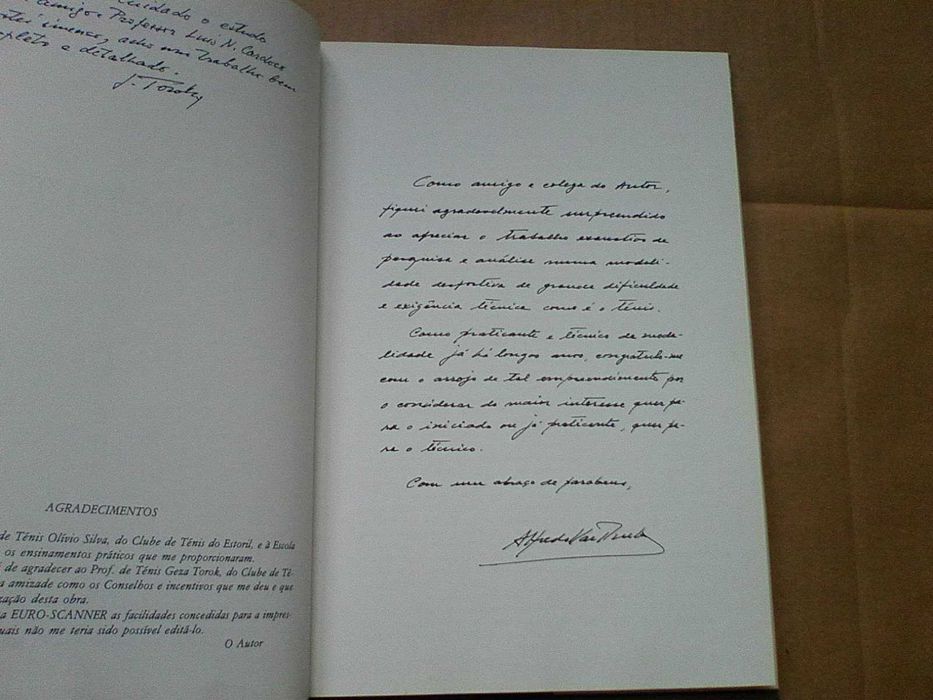 cuidado o estudo
amigo e Professor Luis N. Cardoso
acho um trabalho bem
completo e detalhado.
G. Torok
AGRADECIMENTOS
de Ténis Olívio Silva, do Clube de Ténis do Estoril, e à Escola
os ensinamentos práticos que me proporcionaram.
de agradecer ao Prof. de Ténis Geza Torok, do Clube de Té-
a amizade como os Conselhos e incentivos que me deu e que
zação desta obra.
a EURO-SCANNER as facilidades concedidas para a impres-
uais não me teria sido possível editá-lo.
O Autor
Como amigo e colega do Autor,
fiquei agradavelmente surpreendido
ao apreciar o trabalho exaustivo de
pesquisa e análise numa modali-
dade desportiva de grande dificuldade
e exigência técnica como é o ténis.
Como praticante e técnico da moda-
lidade já há longos anos, congratulo-me
com o arrojo de tal empreendimento por
o considerar do maior interesse quer pa-
ra o iniciado ou já praticante, quer pa-
ra o técnico.
Com um abraço de parabens,
Alfredo Vaz